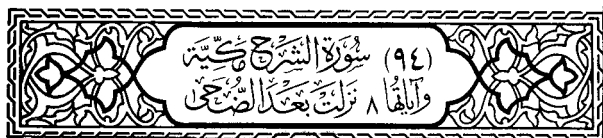 (٩٤) سُورَةُ الشَّرْحِ مَكِّيَّة
وَآيَاتُهَا ٨ نَزَلَتْ بَعْدَ الضُّحَى